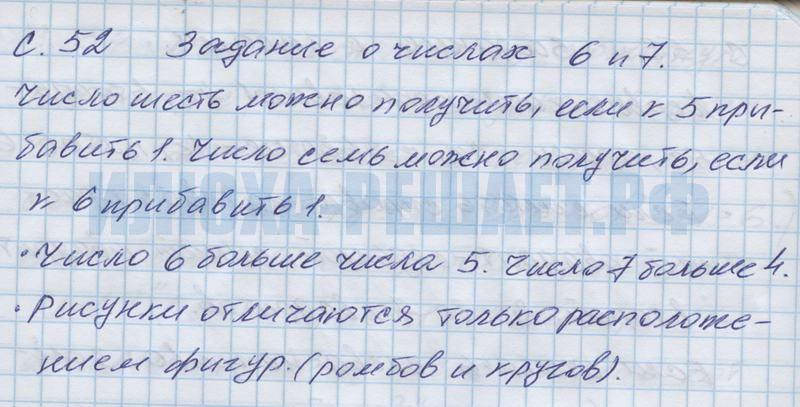 с. 52 Задание о числах 6 и 7.
Число шесть можно получить, если к 5 при-
бавить 1. Число семь можно получить, если
к 6 прибавить 1.
ИЛЮХА-РЕШАЕТ.РФ
• Число 6 больше числа 5. Число 7 больше 4.
• Рисунки отличаются только расположе-
нием фигур. (ромбов и кругов).